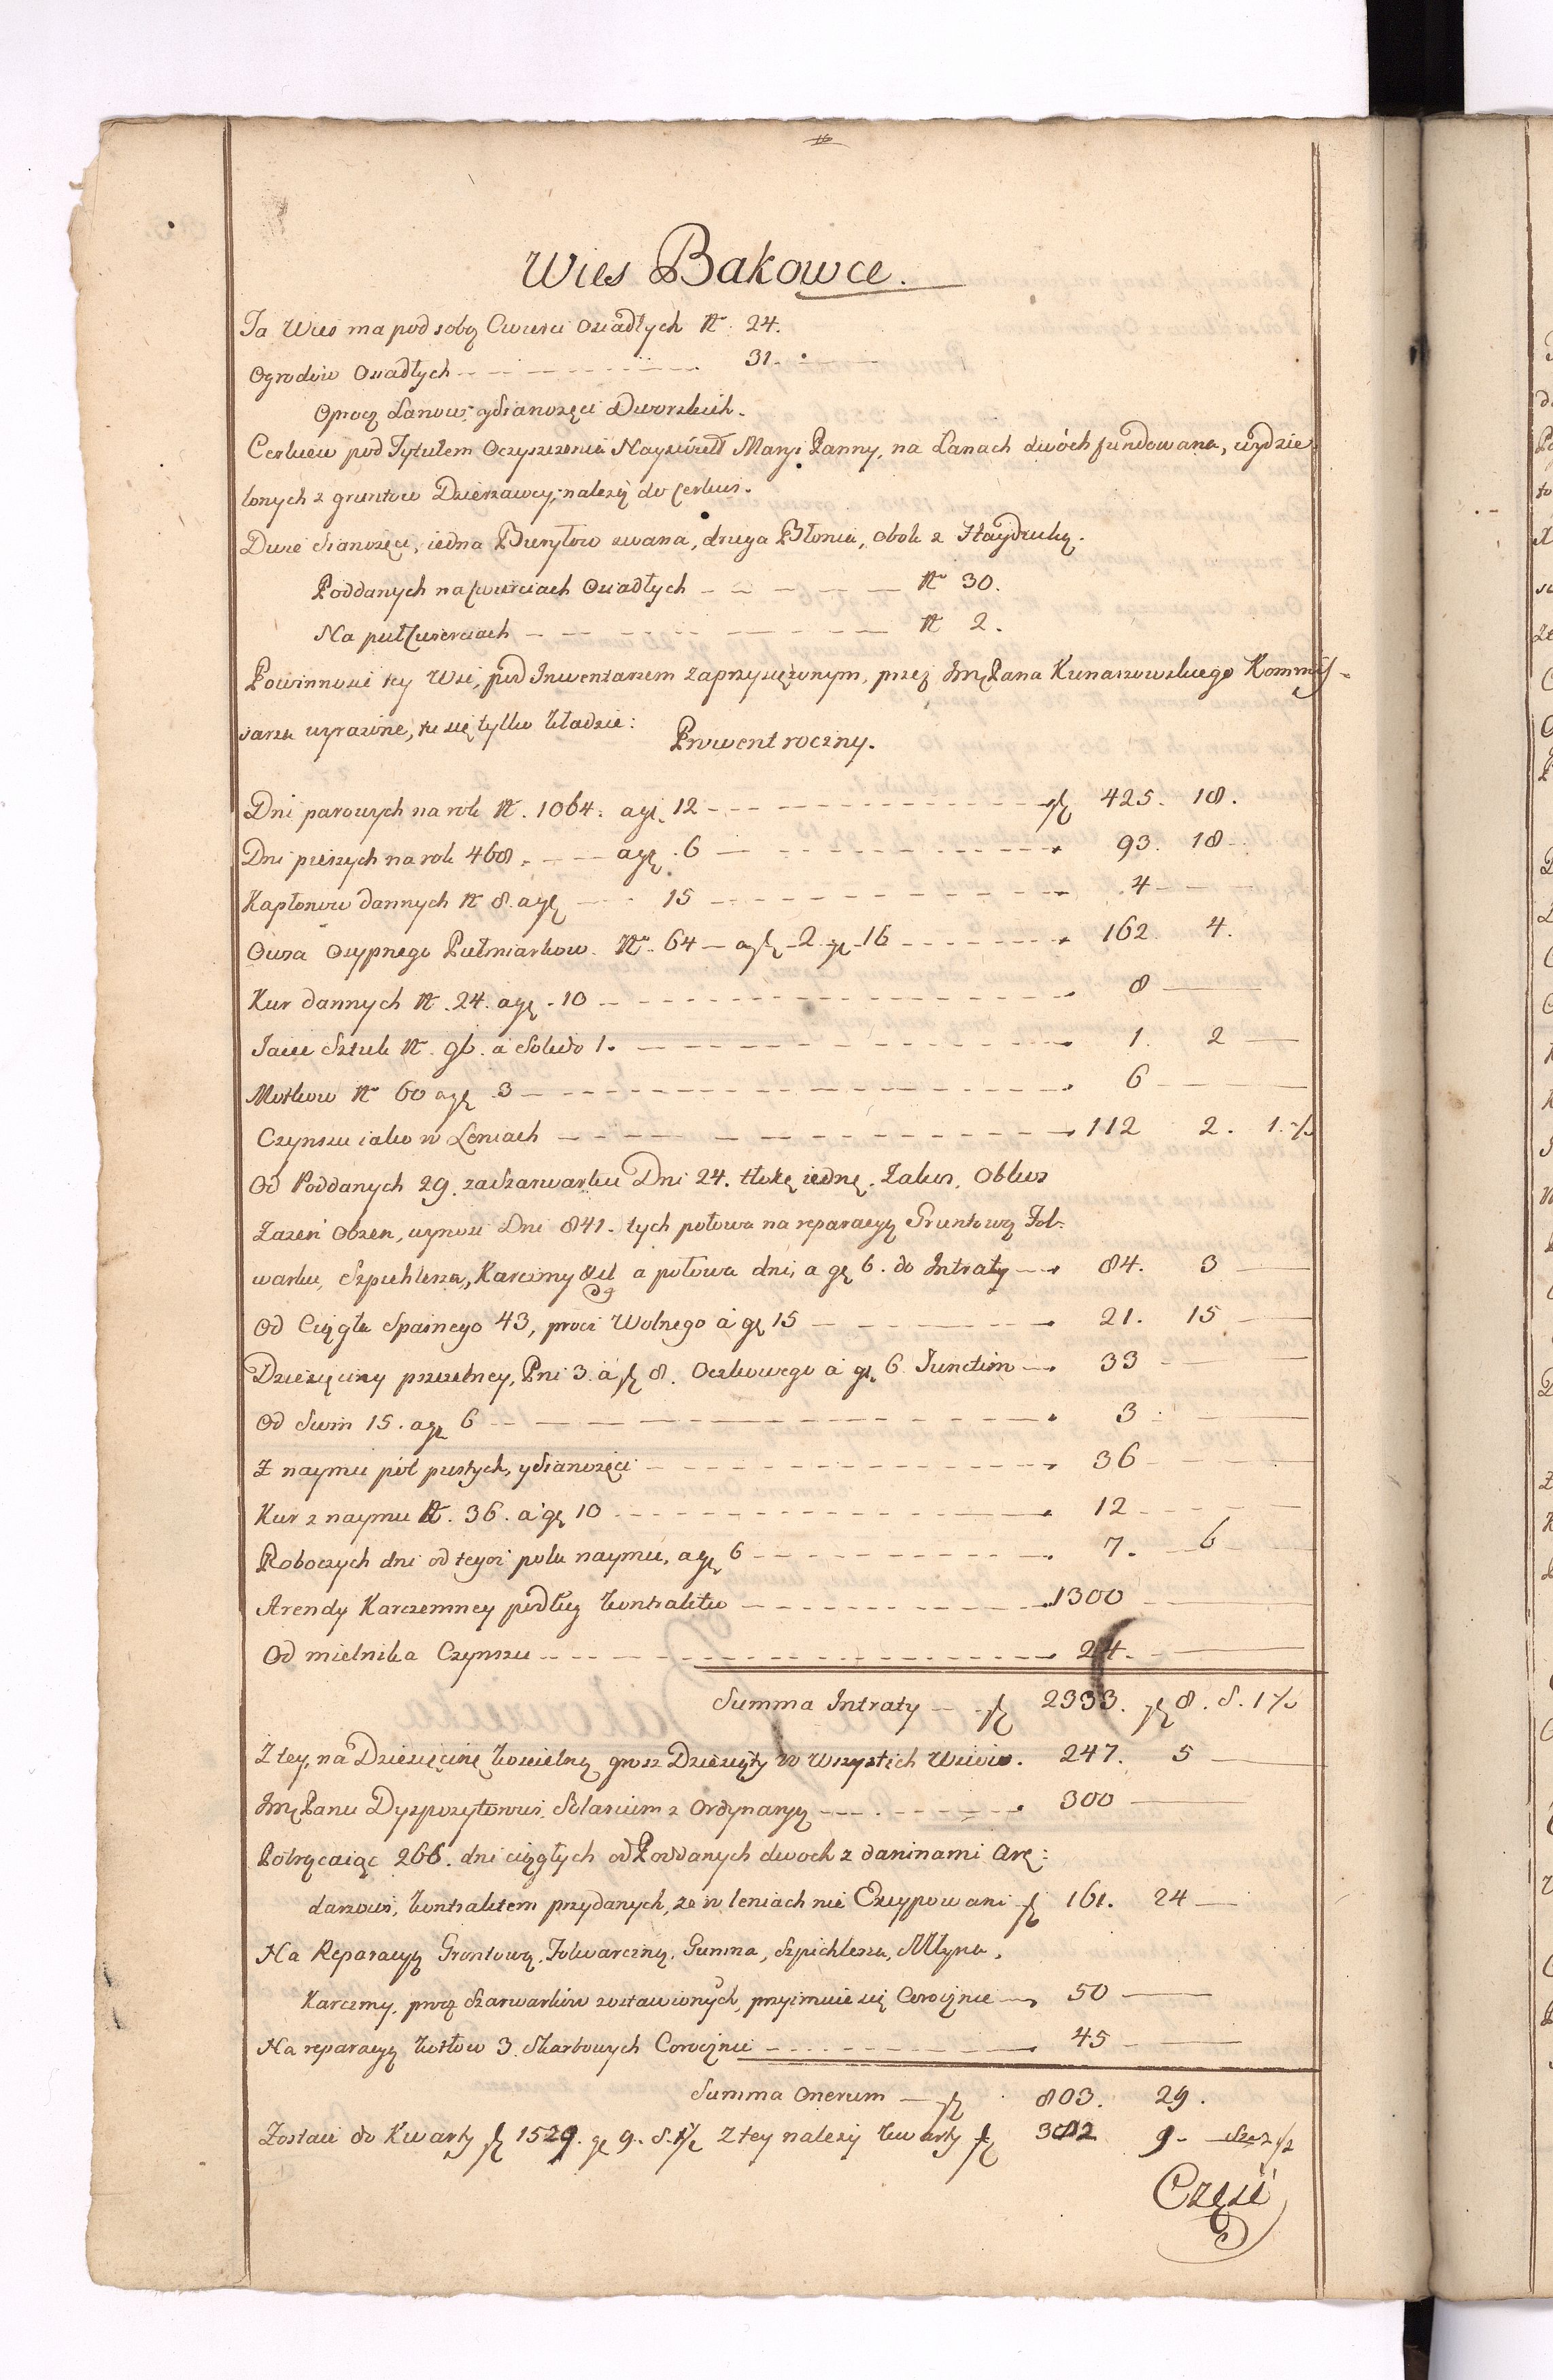 16
Wies Bakowce.
Ta Wies ma pod sobą Cwierci Osiadłych N. 24.
Ogrodow Osiadłych - - - 31.
Oprocz Lanow, y Sianożęci Dworskich.
Cerkiew pod Tytułem Oczyszczenia Nayświęt Maryi Panny, na Łanach dwóch fundowana, wydzie-
lonych z gruntow Dzierzawcy, należy do Cerkwi.
Dwie Sianożęci, iedna Buryłow zwana, druga Błonia, obok z Haydzuką.
Poddanych na Cwierciach Osiadłych - - - N. 30.
Na puł Cwierciach - - - N 2.
Powinnosci tey Wsi, pod Inwentarzem zaprzysiężonym, przez Jmę Pana Kunaszowskiego Kommis-
sarza wyrazone, tu się tylko kładzie:
Prowent roczny.
Dni parowych na rok N. 1064. a gr. 12 - - - fl 425. 18.
Dni pieszych na rok 468. - - - a gr. 6 - - - 93. 18
Kapłonow dannych N 8. a gr 15 - - - 4
Owsa Osypnego Pułmiarkow N. 64 - a fl 2 gr 16 - - - 162. 4.
Kur dannych N. 24. a gr. 10 - - - 8
Jaiec Sztuk N. 96. á Solido 1. - - - 1. 2
Motkow N 60 a gr 3 - - - 6
Czynszu iako w Leniach - - - 112 2. 1. ½
Od Poddanych 29. za Szarwarku Dni 24. tłokę iednę. Zakos, Obkos
Zazen Obzen, wynosi Dni 841. tych połowa na reparacyą Gruntową Fol-
warku, Szpichlerza, Karczmy & a połowa dni, a gr 6. do Intraty - - 84. 3
Od Ciągła Spasnego 43, procz Wolnego á gr 15 - - - 21. 15
Dziesięciny pszczelney, Pni 3. á fl 8. Oczkowego á gr. 6 Junctim - 33
Od Swin 15. a gr 6 - - - 3
Z naymu pól pustych, y sianożęci - - - 36
Kur z naymu N. 36. á gr 10 - - - 12
Roboczych dni od tegoż pola naymu, a gr 6 - - - 7. 6
Arendy Karczemney podług kontraktu - - - 1300
Od mielnika Czynszu - - - 24.
Summa Intraty - - fl 2333. gr 8. S. 1 ½
Z tey, na Dziesięcinę Koscielną grosz Dziesiąty w Wszystkich Wsiow. 247. 5
Jmę Panu Dyspozytorowi, Solarium z Ordynaryą - - - 300
Potrącaiąc 266. dni ciągłych od Poddanych dwoch z daninami Arę:
darzowi, kontraktem przydanych, ze w leniach nie Excypowani fl 161. 24
Na Reparacyą Gruntową, Folwarczną, Gumna, Szpichlerza, Młyna,
Karczmy, procz Szarwarków zostawionych, przyimuie się Corocznie - 50
Na reparacyą kotłow 3. Skarbowych Corocznie - - - 45
Summa Onerum - fl 803. 29.
Zostaie do Kwarty fl 1529. gr 9. S. 1½ Z tey należy kwarty fl 382 9.
Częsć